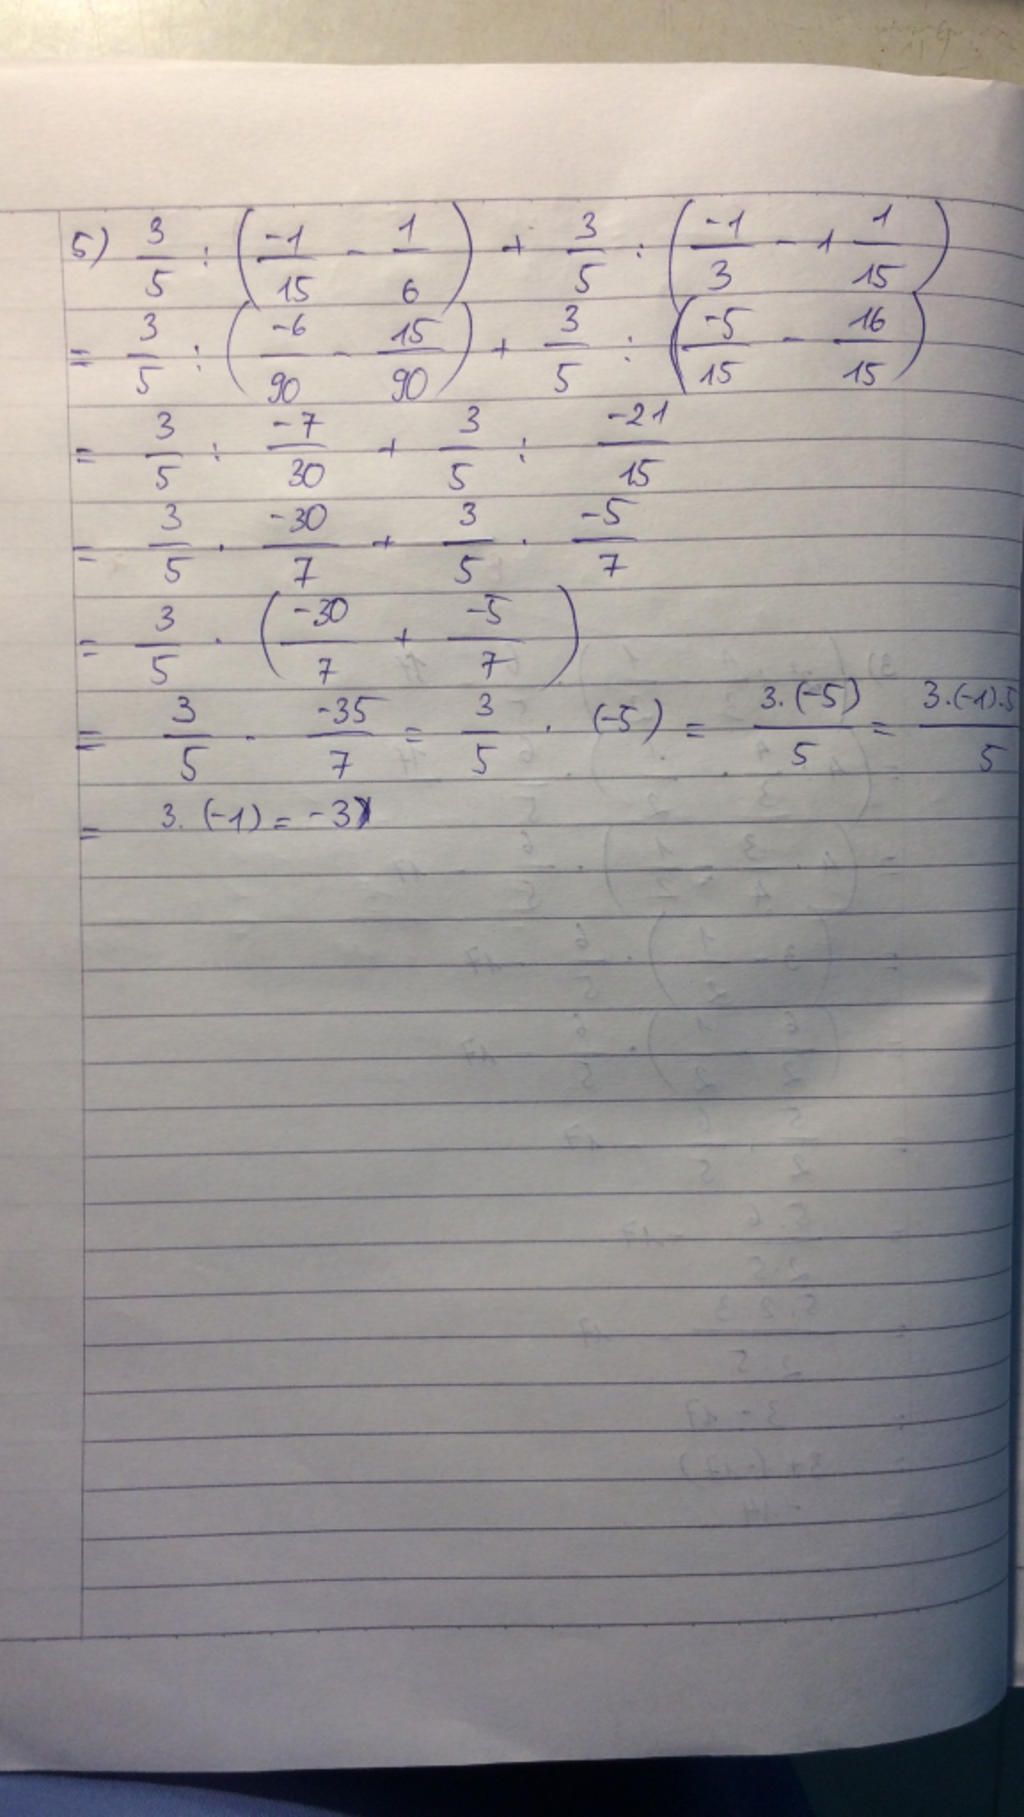 5) 3/5 : (-1/15 - 1/6) + 3/5 : (-1/3 - 1 1/15)
= 3/5 : (-6/90 - 15/90) + 3/5 : (-5/15 - 16/15)
= 3/5 : -7/30 + 3/5 : -21/15
= 3/5 . -30/7 + 3/5 . -5/7
= 3/5 . (-30/7 + -5/7)
= 3/5 . -35/7 = 3/5 . (-5) = 3.(-5)/5 = 3.(-1).5/5
= 3.(-1) = -3